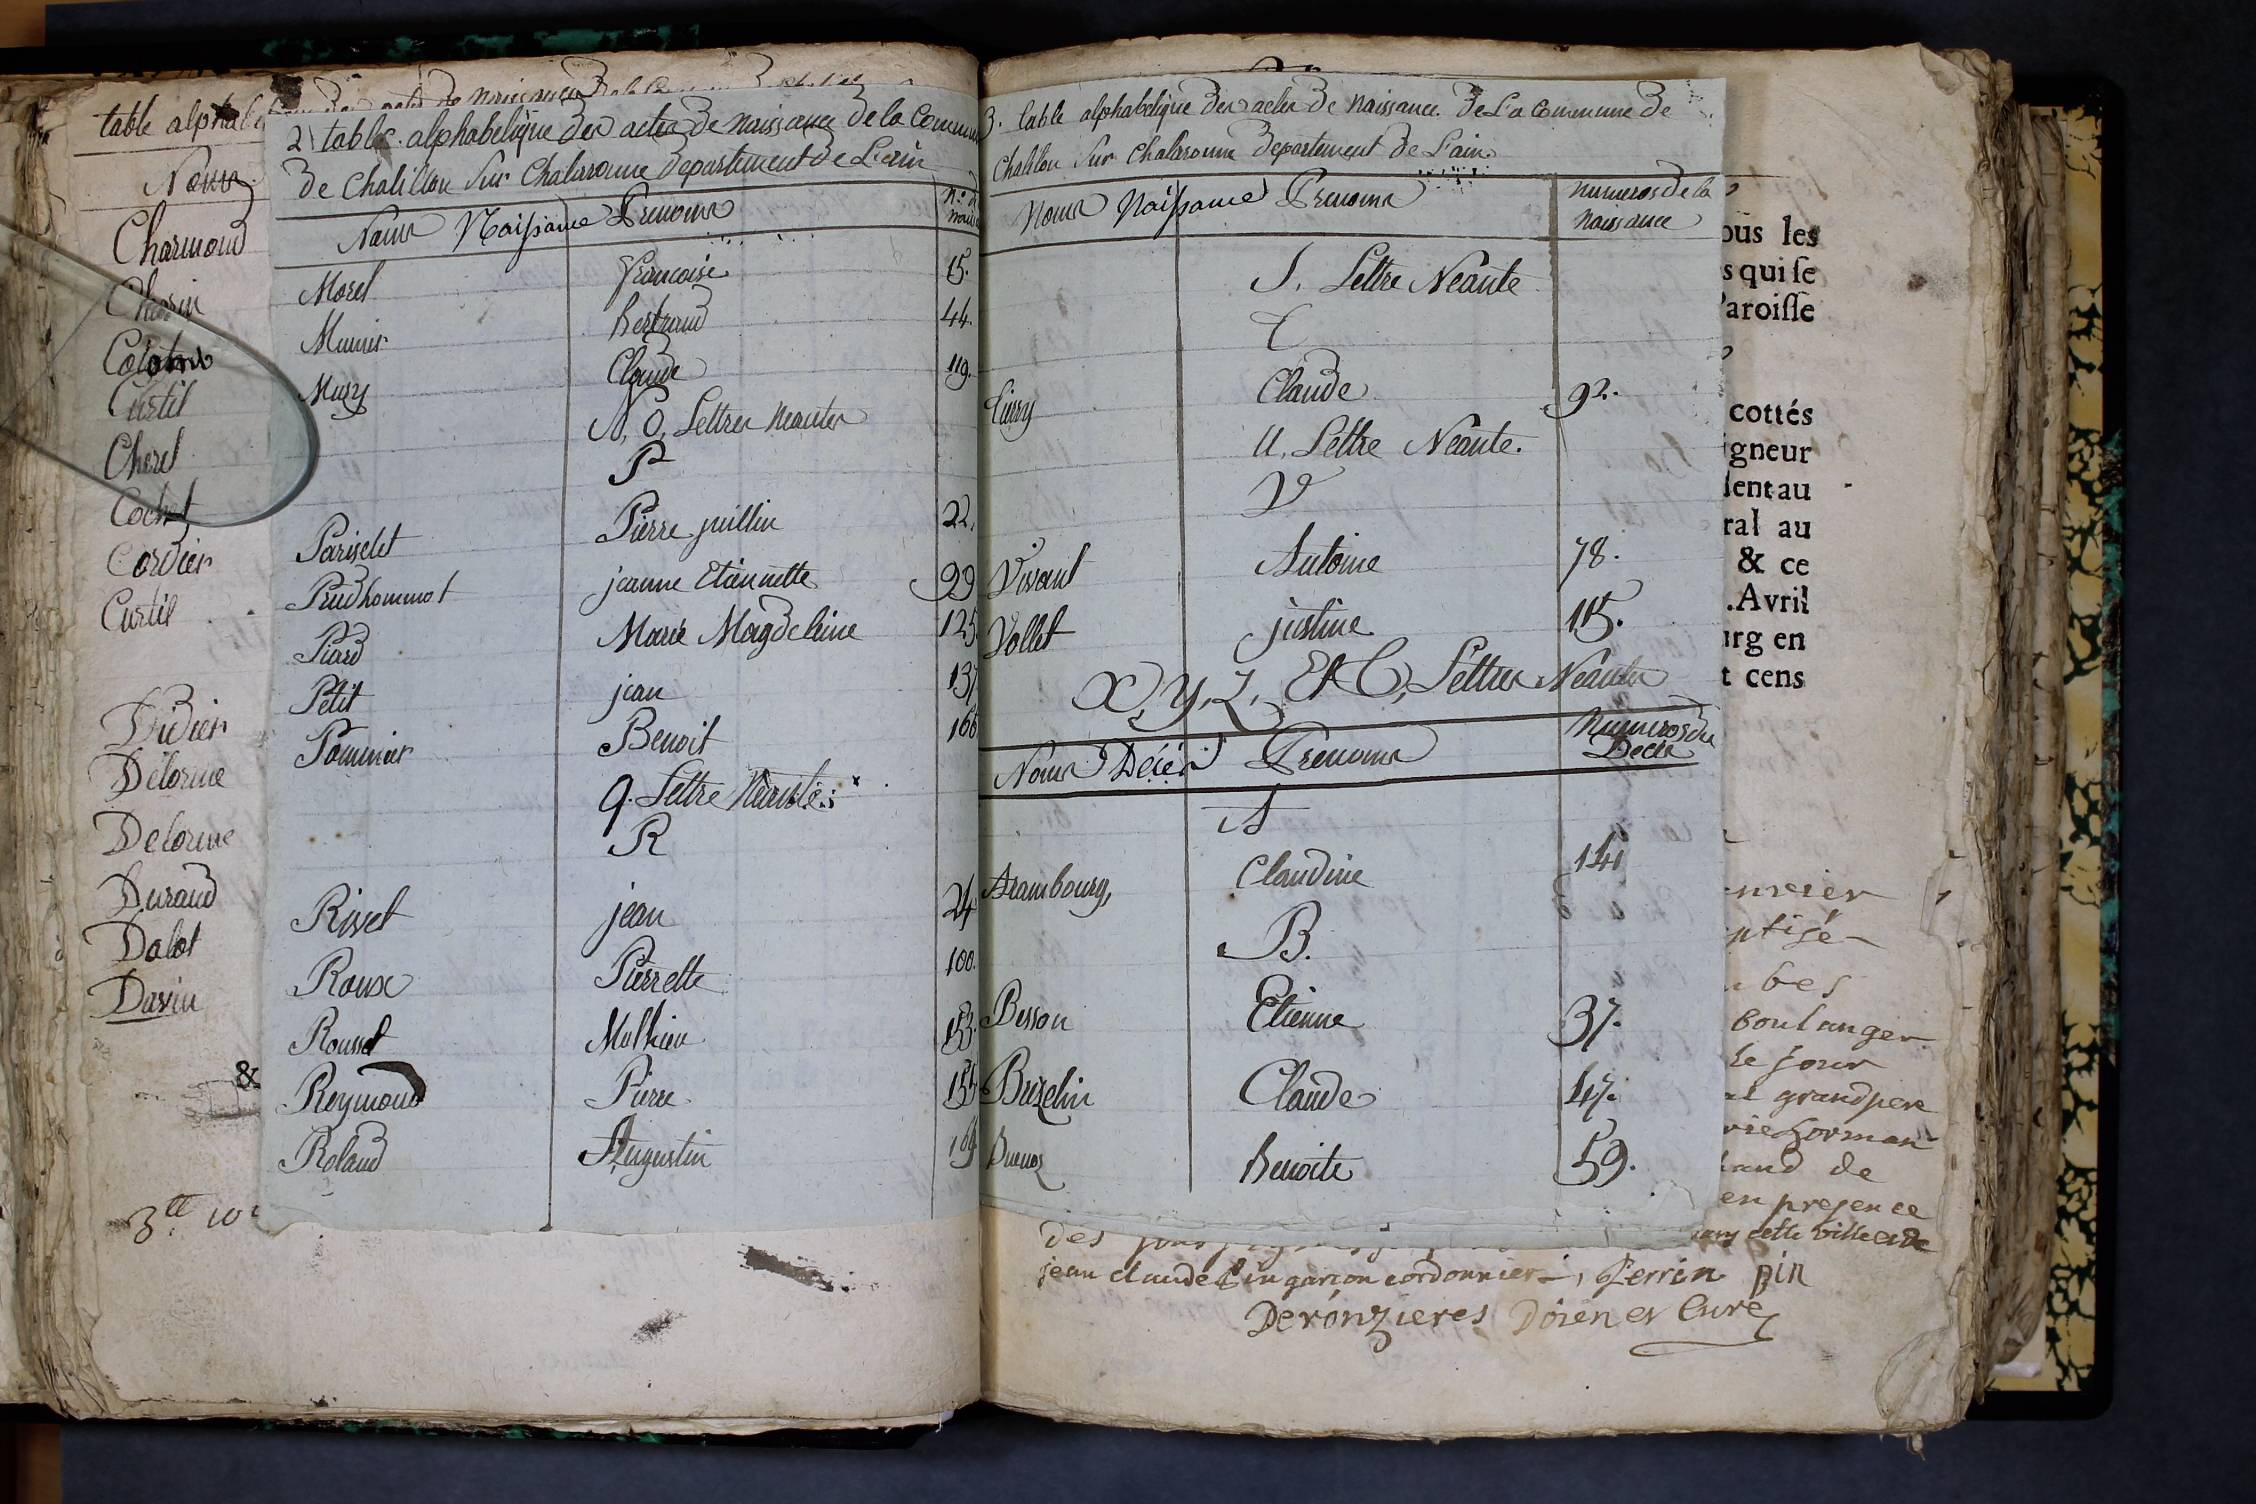 table alphabetique des actes de naissance de la
Noms
Charmond
Chorin
Colomb
Curtil
Cherel
Cochet
Cordier
Curtil
Didier
Delorme
Delorme
Durand
Dalot
Davin
&
3tt 10s
2 table alphabetique des actes de naissance de la Commune
de Chatillon Sur Chalaronne departement de L'ain
Noms Naissance Prenoms N.º de naiss
Morel francoise 15.
Munier Bertrand 44.
Mury Claude 119.
N, O, Lettres neantes
P
Pariselet Pierre juillin 22.
Prudhommot jeanne Etiennette 99
Piard Marie Magdeleine 125
Petit jean 137
Pommier Benoit 166
q. Lettre Néante
R
Rivet jean 24
Roux Pierrette 100.
Rousset Mathieu 153.
Reymond Pierre 155
Roland Augustin 169
3. table alphabetique des actes de naissance de La Commune de
Chatillon Sur Chalaronne departement de L'ain.
Noms Naissance Prenoms numeros de la naissance
S. Lettre Neante
T
Claude 92.
U. Lettre Neante.
V
Vivant Antoine 78.
Vollet justine 115.
X, Y, Z, Et C, Lettres Neantes
Noms Décès Prenoms Numeros du Deces
A
Arambourg, Claudine 141
B.
Besson Etienne 37.
Buzelin Claude 47.
Benoite 59.
ous les
s qui se
Paroisse
cottés
igneur
dent au
ral au
& ce
.Avril
urg en
t cens
anvier
ptisé
bes
boulanger
le jour
grandpere
and de
en presence
dans cette ville et de
jean claude Pin garcon cordonnier, Perrin pin
Deronzieres Doien et Curé